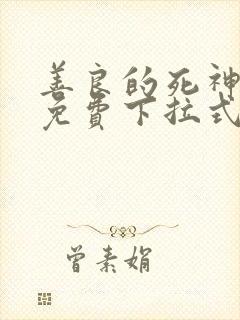 善良的死神
免费下拉式
曾素娟